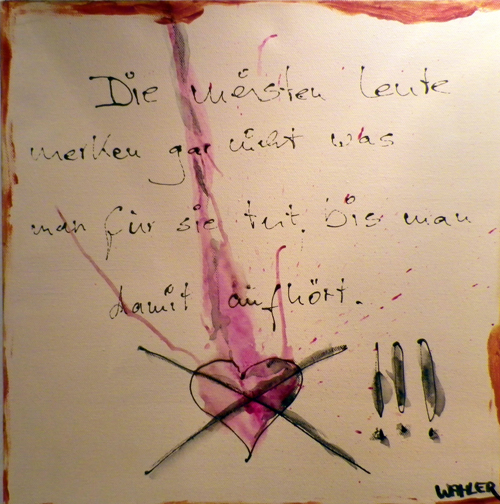 Die meisten leute
merken gar nicht was
man für sie tut. bis man
damit aufhört.
!!!
WAHLER